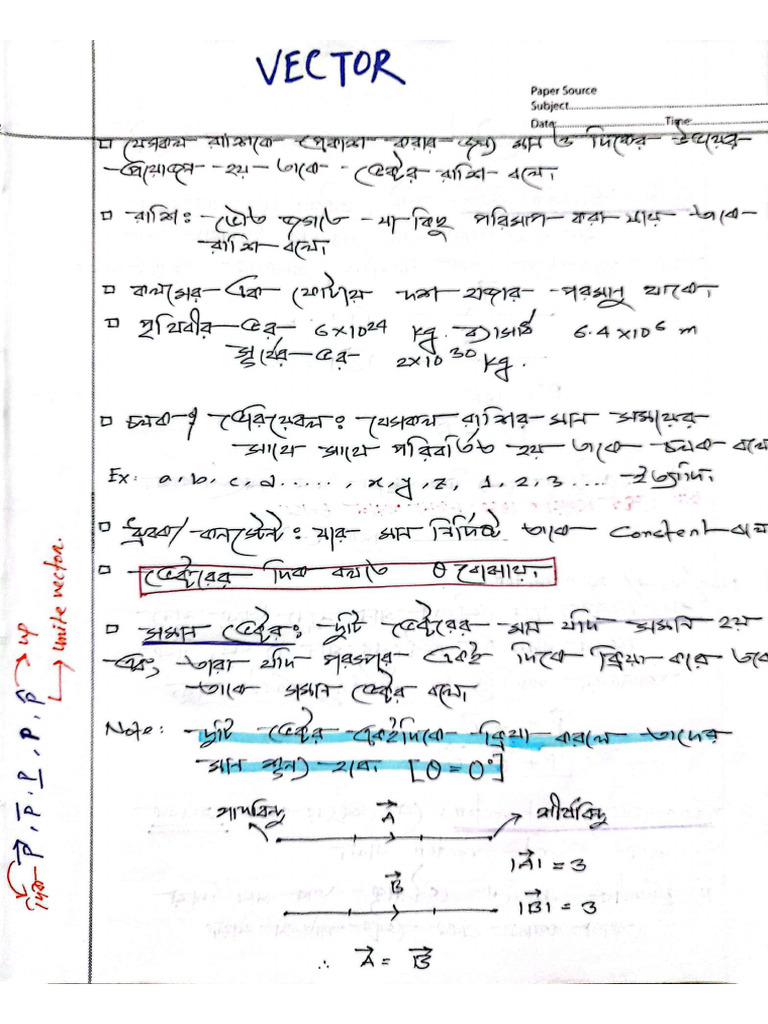 VECTOR
Paper Source
Subject
Date: Time
যেসকল রাশিকে প্রকাশ করার জন্য মান ও দিকের উভয়ের
প্রয়োজন হয় তাকে ভেক্টর রাশি বলে।
রাশি: ভৌত জগতে যা কিছু পরিমাপ করা যায় তাকে
রাশি বলে।
কলমের এক ফোটায় দশ হাজার পরমানু থাকে।
পৃথিবীর ভর 6×10²⁴ kg. ব্যাসার্ধ 6.4×10⁶ m
সূর্যের ভর 2×10³⁰ kg.
চলক / ভেরিয়েবল: যেসকল রাশির মান সময়ের
সাথে সাথে পরিবর্তিত হয় তাকে চলক বলে
Ex: a, b, c, d....., x, y, z, 1, 2, 3.... ইত্যাদি।
ধ্রুবক/ কনস্টেন্ট: যার মান নির্দিষ্ট তাকে Constent বলে
ভেক্টরের দিক বলতে θ বোঝায়।
সমান ভেক্টর: দুটি ভেক্টরের মান যদি সমান হয়
এবং তারা যদি পরস্পর একই দিকে ক্রিয়া করে তবে
তাকে সমান ভেক্টর বলে।
Note: দুটি ভেক্টর একইদিকে ক্রিয়া করলে তাদের
মান শূন্য হবে [θ = 0°]
পাদবিন্দু A⃗ শীর্ষবিন্দু
|A⃗| = 3
B⃗
|B⃗| = 3
∴ A⃗ = B⃗
P⃗, P̅, P̲, P, P̂
up
Unite vector.